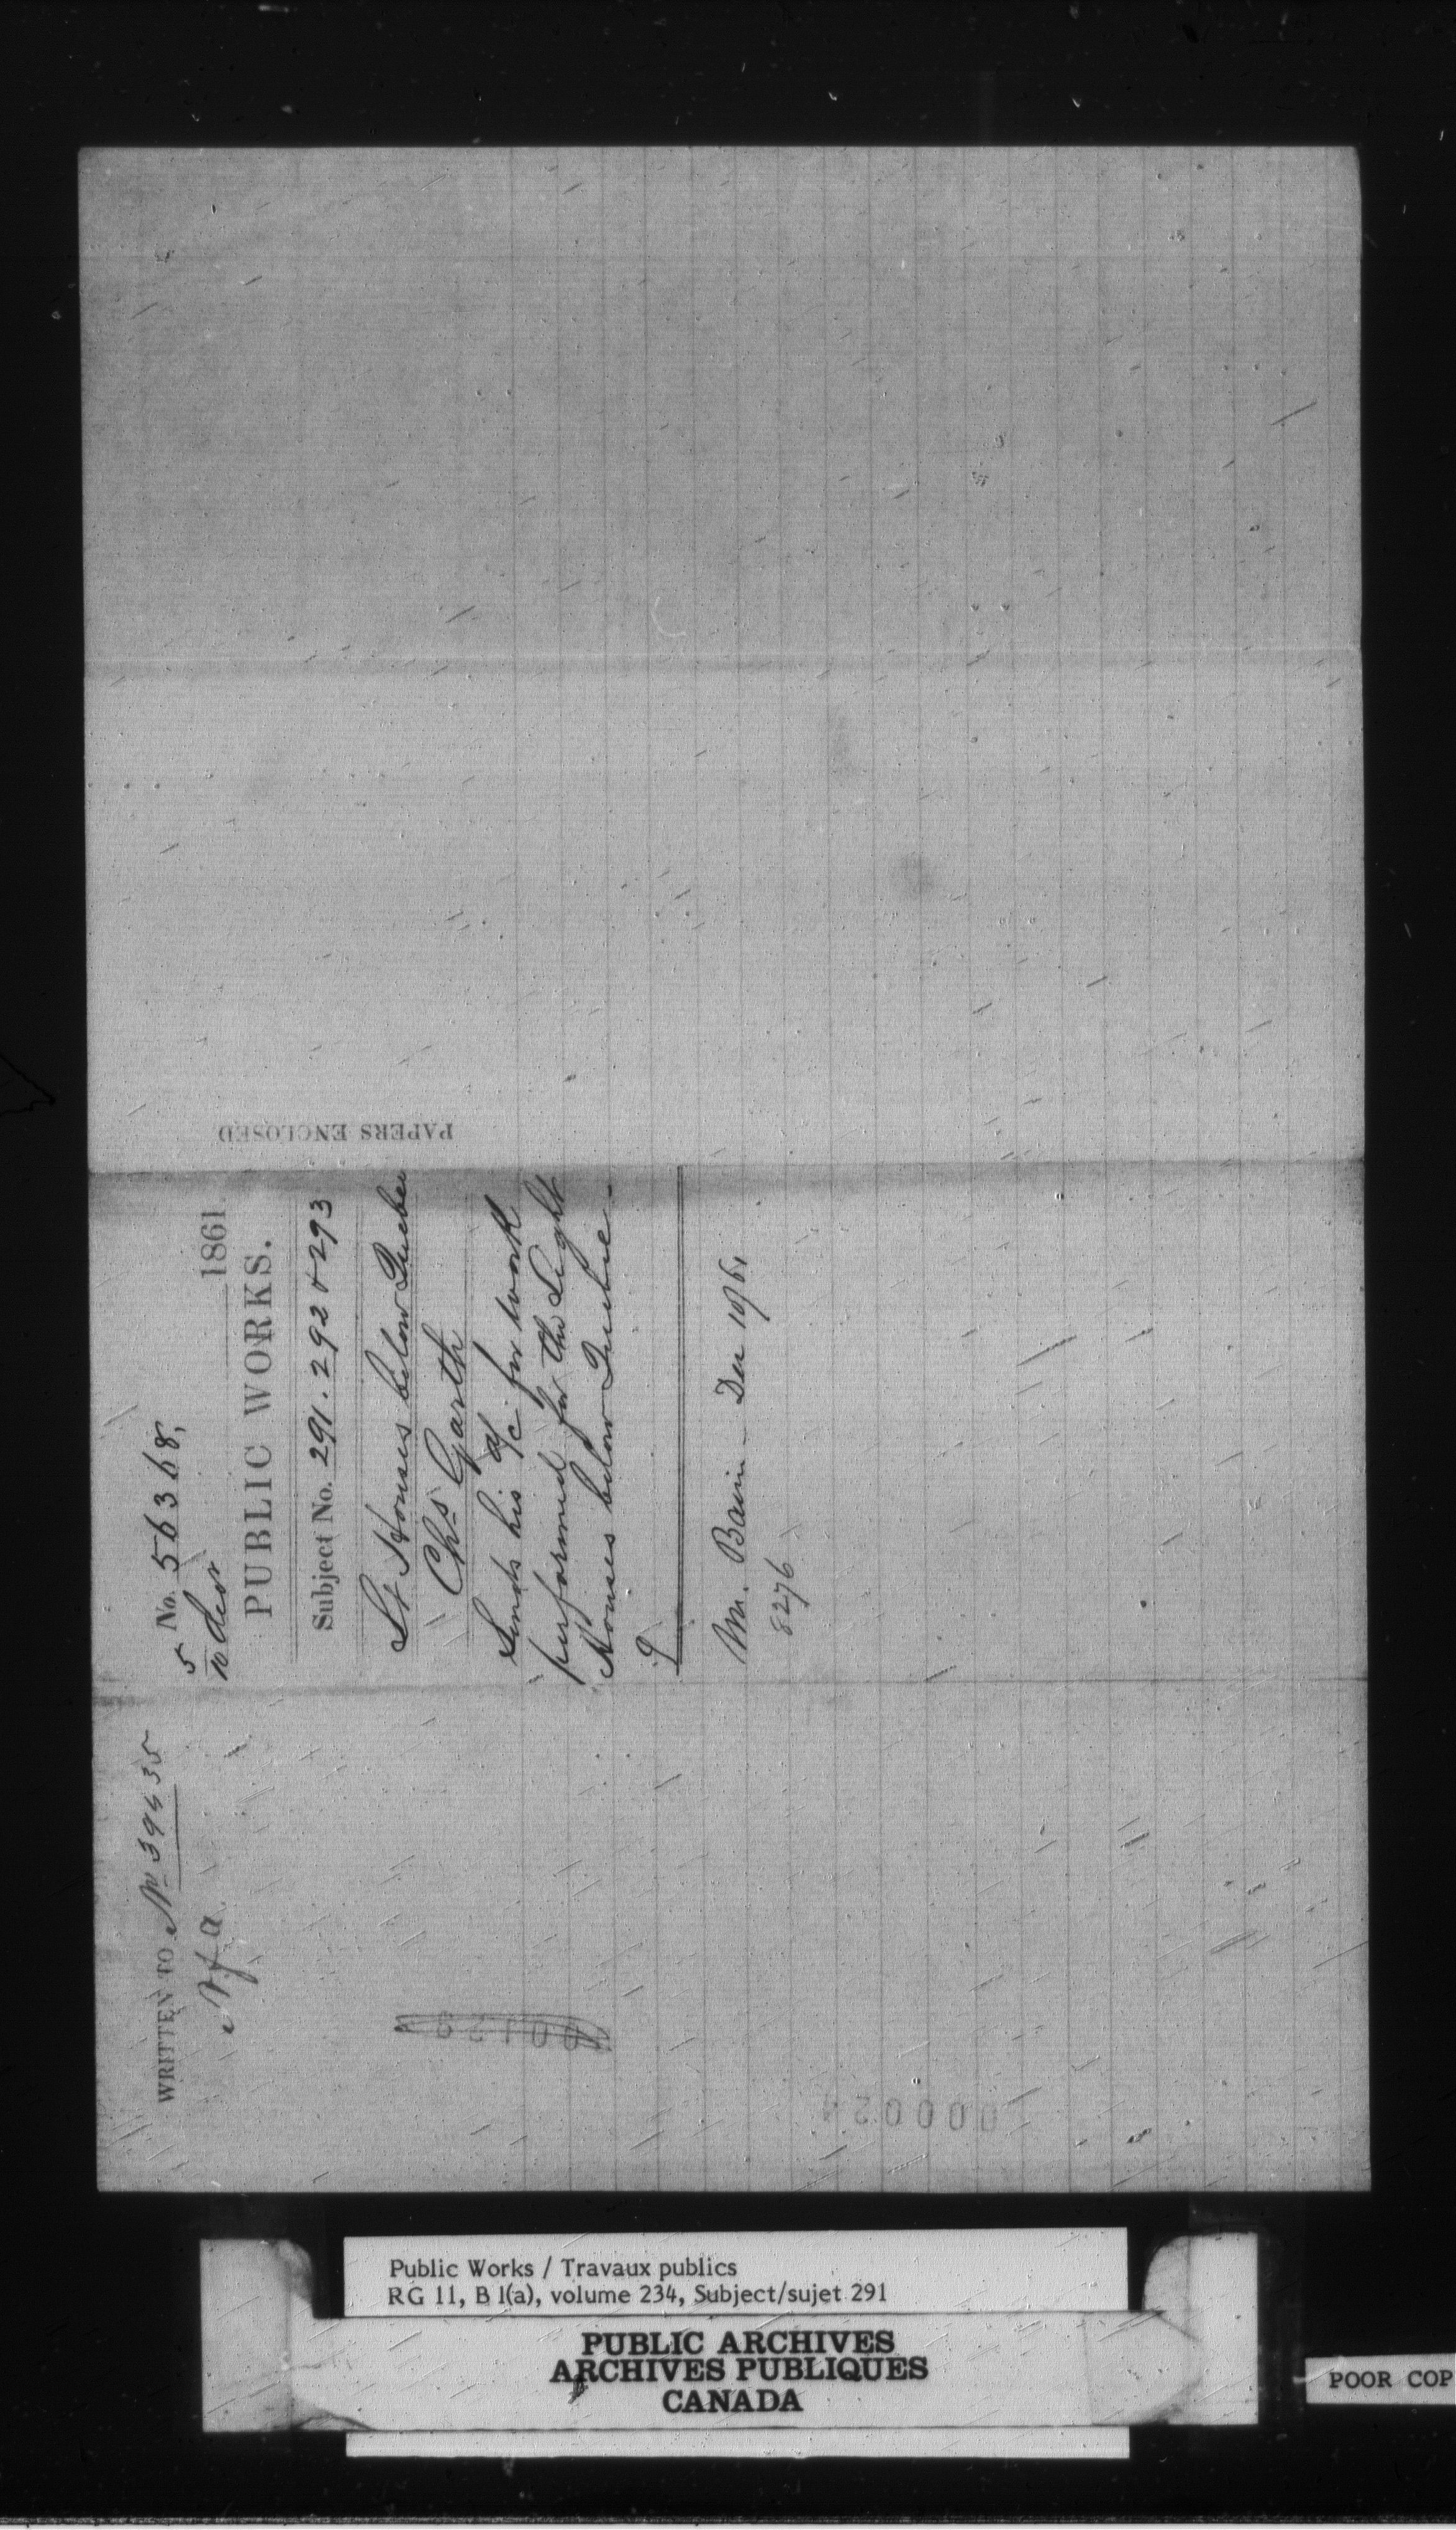 WRITTEN TO No 39435
Nfa
No. 56368,
5
10 Decr 1861
PUBLIC WORKS.
Subject No. 291. 292 & 293
Lt Houses below Quebec
Chs Garth
Sends his a/c for work
performed for the Light
Houses below Quebec.
Mr. Bain Dec 10/61
8276
PAPERS ENCLOSED
000024
Public Works / Travaux publics
RG 11, B 1(a), volume 234, Subject/sujet 291
PUBLIC ARCHIVES
ARCHIVES PUBLIQUES
CANADA
POOR COP